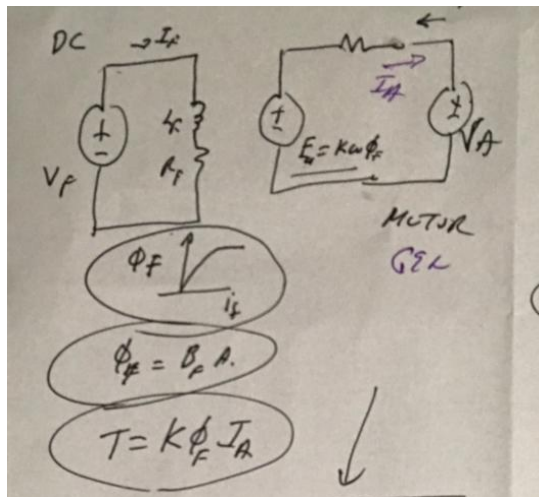 DC
→ I_F
I_A
+
-
V_F
L_F
R_F
+
-
E_a = Kωϕ_F
+
-
V_A
MOTOR
GEN
ϕ_F
i_f
ϕ_F = B_F A.
T = K ϕ_F I_A